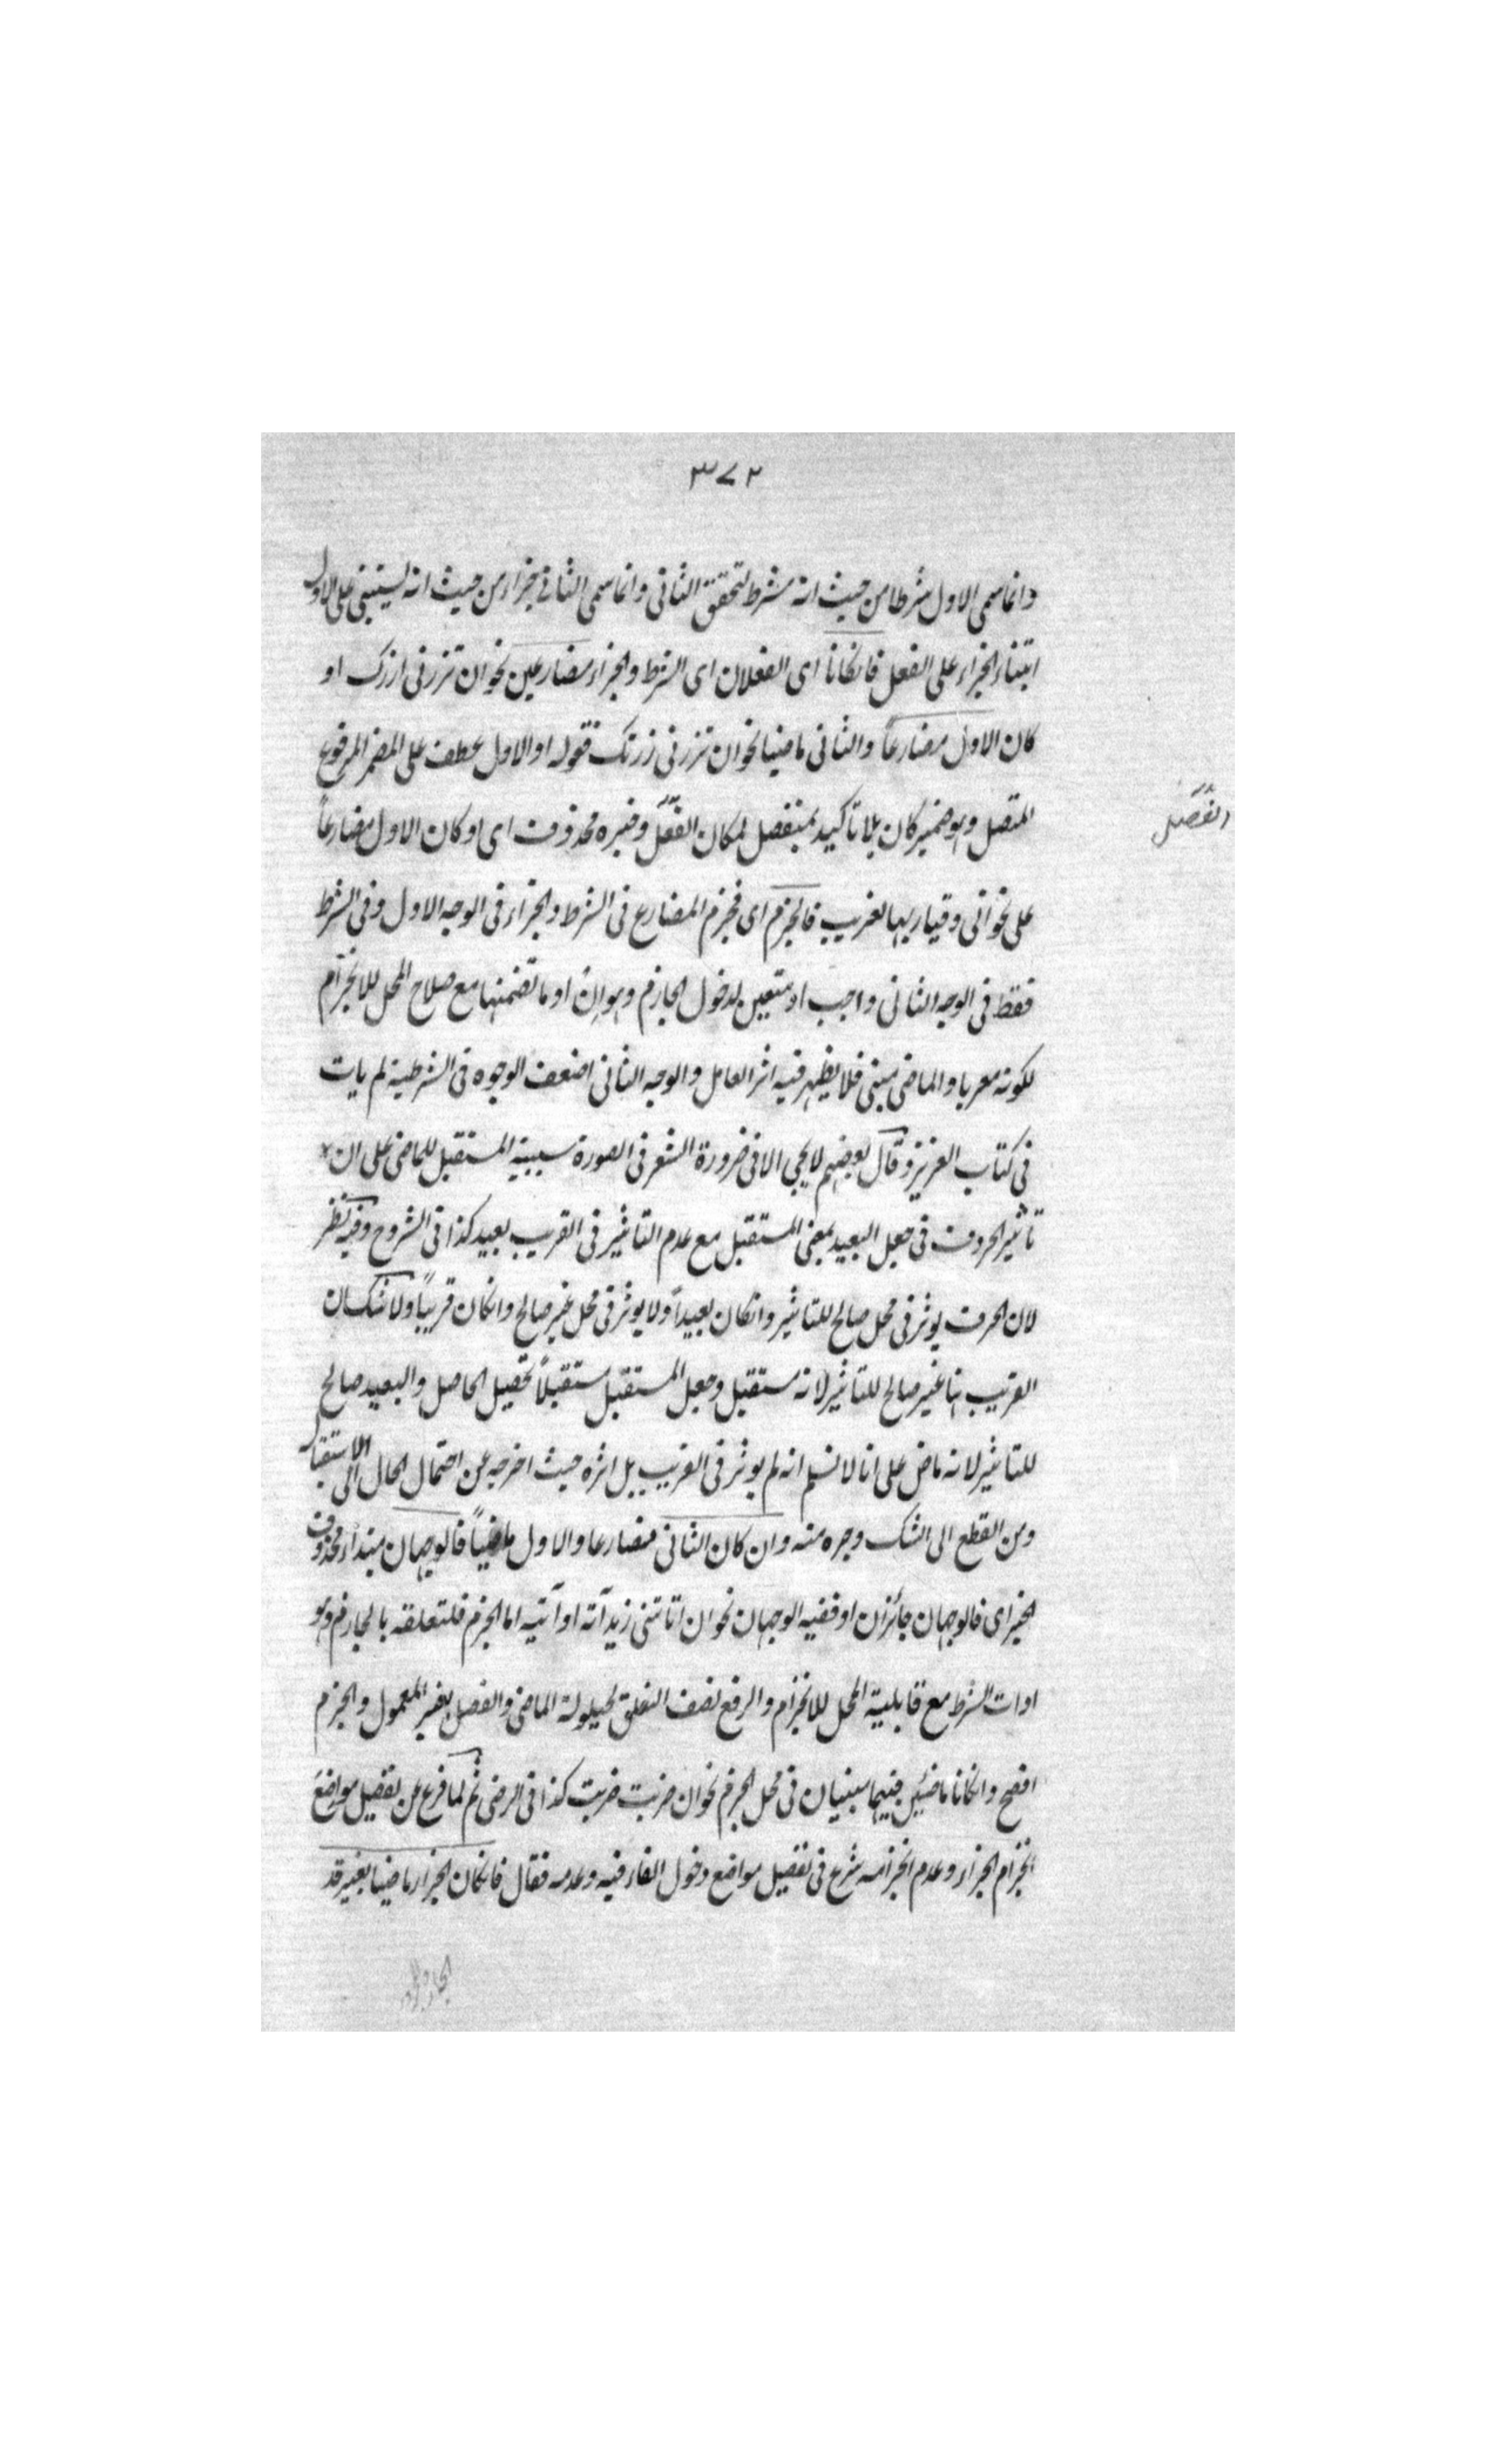 ٣٧٢
وانما سمى الاول شرطا من حيث انه شرط لتحقق الثانى وانما سمى الثانى جزاء من حيث انه يبتنى على الاول
ابتناء الجزاء على الفعل فانكانا اى الفعلان اى الشرط والجزاء مضارعين نحو ان تزرنى ازرك او
كان الاول مضارعاً والثانى ماضيا نحو ان تزرنى زرتك فقوله او الاول عطف على المضمر المرفوع
المتصل وهو ضمير كان بلا تاكيد بمنفصل لمكان الفصل وخبره محذوف اى او كان الاول مضارعاً
الفصل
على نحو انى وقيار بها لغريب فالجزم اى فجزم المضارع فى الشرط والجزاء فى الوجه الاول وفى الشرط
فقط فى الوجه الثانى واجب او متعين لدخول الجازم وهو ان او ما تضمنها مع صلاح المحل للانجزام
لكونه معربا والماضى مبنى فلا يظهر فيه اثر العامل والوجه الثانى اضعف الوجوه فى الشرطية لم يات
فى كتاب العزيز وقال بعضهم لا يجى الا فى ضرورة الشعر فى الصورة سببية المستقبل للماضى على ان
تاثير الحروف فى جعل البعيد بمعنى المستقبل مع عدم التاثير فى القريب بعيد كذا فى الشروح وفيه نظر
لان الحرف يوثر فى محل صالح للتاثير وانكان بعيداً ولا يوثر فى محل غير صالح وانكان قريباً ولا شك ان
القريب هنا غير صالح للتاثير لانه مستقبل وجعل المستقبل مستقبلاً تحصيل الحاصل والبعيد صالح
للتاثير لانه ماض على انا لا نسلم انه لم يوثر فى القريب بل اثره حيث اخرجه عن احتمال الحال الى الاستقبال
ومن القطع الى الشك وجره منه وان كان الثانى مضارعا والاول ماضياً فالوجهان مبتداء محذوف
الخبر اى فالوجهان جائزان او ففيه الوجهان نحو ان اتانى زيد آته او آتيه اما الجزم فلتعلقه بالجازم وهو
ادات الشرط مع قابلية المحل للانجزام والرفع لضعف التعلق لحيلولة الماضى والفصل بغير المعمول والجزم
افصح وانكانا ماضيين فهما مبنيان فى محل الجزم نحو ان ضربت ضربت كذا فى الرضى ثم لما فرغ عن تفصيل مواضع
انجزام الجزاء وعدم انجزامه شرع فى تفصيل مواضع دخول الفاء فيه وعدمه فقال فانكان الجزاء ماضيا بغير قد